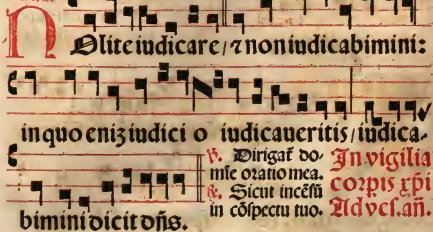 Nolite iudicare/ ⁊ non iudicabimini:
in quo eniꝫ iudici o iudicaueritis/ iudica-
bimini dicit dñs.
℣. Dirigat̃ do-
mĩe oratio mea.
℟. Sicut incẽsũ
in cõspectu tuo.
In vigilia
corpis xpi
Ad vesꝑ. añ.